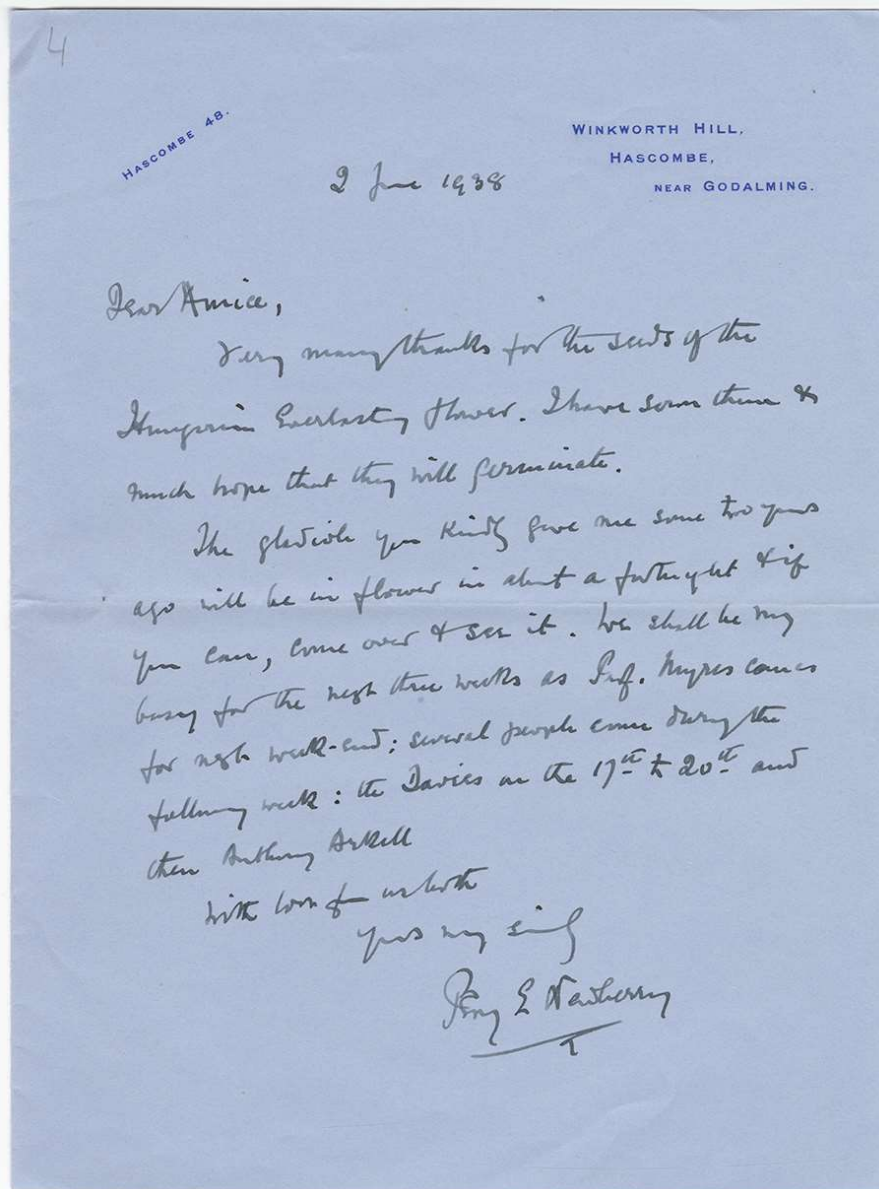 4
HASCOMBE 48.
WINKWORTH HILL,
HASCOMBE,
NEAR GODALMING.
2 June 1938
Dear Amice,
Very many thanks for the seeds of the
Hungarian Everlasting flower. I have sown them &
much hope that they will germinate.
The gladiole you kindly gave me some two years
ago will be in flower in about a fortnight & if
you can, come over & see it. We shall be very
busy for the next three weeks as Prof. Myres comes
for next week-end; several people come during the
following week: the Davies on the 17th to 20th and
then Anthony Arkell
With love from us both
Yours very sincly
Percy E Newberry